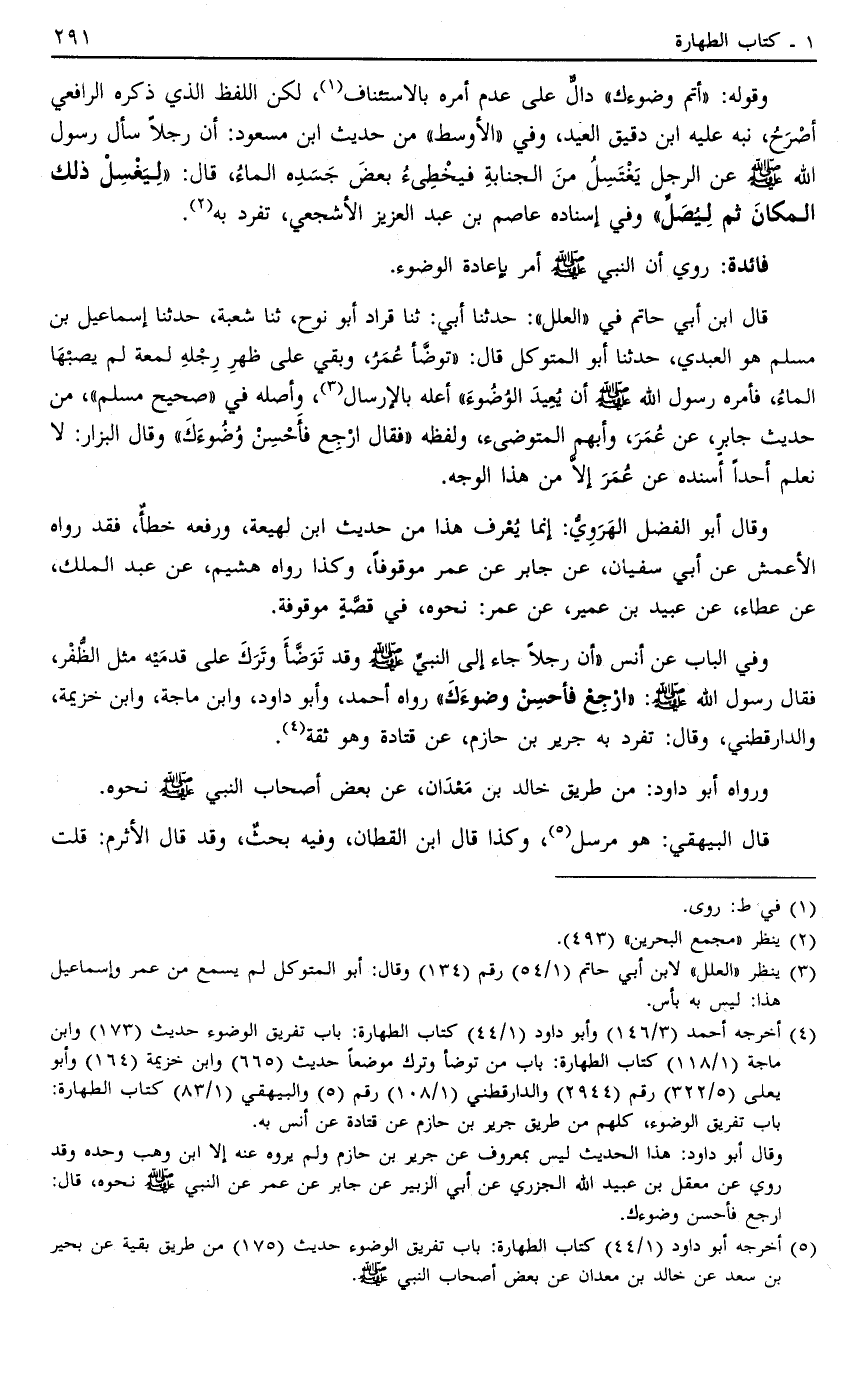 ١ - كتاب الطهارة
٢٩١
وقوله: «أتم وضوءك» دالٌّ على عدم أمره بالاستئناف(١)، لكن اللفظ الذي ذكره الرافعي
أصْرَحُ، نبه عليه ابن دقيق العيد، وفي «الأوسط» من حديث ابن مسعود: أن رجلاً سأل رسول
الله ﷺ عن الرجل يَغْتَسِلُ منَ الجنابةِ فيخْطِىءُ بعضَ جَسَدِه الماءُ، قال: «لِيَغْسِلْ ذلك
المكانَ ثم لِيُصَلِّ» وفي إسناده عاصم بن عبد العزيز الأشجعي، تفرد به(٢).
فائدة: روي أن النبي ﷺ أمر بإعادة الوضوء.
قال ابن أبي حاتم في «العلل»: حدثنا أبي: ثنا قراد أبو نوح، ثنا شعبة، حدثنا إسماعيل بن
مسلم هو العبدي، حدثنا أبو المتوكل قال: «توضَّأ عُمَرُ، وبقي على ظهرِ رِجْلهِ لمعة لم يصبْهَا
الماءُ، فأمره رسول الله ﷺ أن يُعِيدَ الوُضُوءَ» أعله بالإرسال(٣)، وأصله في «صحيح مسلم»، من
حديث جابرٍ، عن عُمَرَ، وأبهم المتوضىء، ولفظه «فقال ارْجِع فأَحْسِنْ وُضُوءَكَ» وقال البزار: لا
نعلم أحداً أسنده عن عُمَرَ إلاَّ من هذا الوجه.
وقال أبو الفضل الهَرَوِيُّ: إنما يُعْرف هذا من حديث ابن لهيعة، ورفعه خطأٌ، فقد رواه
الأعمش عن أبي سفيان، عن جابر عن عمر موقوفاً، وكذا رواه هشيم، عن عبد الملك،
عن عطاء، عن عبيد بن عمير، عن عمر: نحوه، في قصَّةٍ موقوفة.
وفي الباب عن أنس «أن رجلاً جاء إلى النبيِّ ﷺ وقد تَوَضَّأَ وتَرَكَ على قدمَيْه مثل الظُّفْر،
فقال رسول الله ﷺ: «ارْجِعْ فأحسِنْ وضوءَكَ» رواه أحمد، وأبو داود، وابن ماجة، وابن خزيمة،
والدارقطني، وقال: تفرد به جرير بن حازم، عن قتادة وهو ثقة(٤).
ورواه أبو داود: من طريق خالد بن مَعْدَان، عن بعض أصحاب النبي ﷺ نحوه.
قال البيهقي: هو مرسل(٥)، وكذا قال ابن القطان، وفيه بحثٌ، وقد قال الأثرم: قلت
(١) في ط: روى.
(٢) ينظر «مجمع البحرين» (٤٩٣).
(٣) ينظر «العلل» لابن أبي حاتم (٥٤/١) رقم (١٣٤) وقال: أبو المتوكل لم يسمع من عمر وإسماعيل
هذا: ليس به بأس.
(٤) أخرجه أحمد (١٤٦/٣) وأبو داود (٤٤/١) كتاب الطهارة: باب تفريق الوضوء حديث (١٧٣) وابن
ماجة (١١٨/١) كتاب الطهارة: باب من توضأ وترك موضعاً حديث (٦٦٥) وابن خزيمة (١٦٤) وأبو
يعلى (٣٢٢/٥) رقم (٢٩٤٤) والدارقطني (١٠٨/١) رقم (٥) والبيهقي (٨٣/١) كتاب الطهارة:
باب تفريق الوضوء، كلهم من طريق جرير بن حازم عن قتادة عن أنس به.
وقال أبو داود: هذا الحديث ليس بمعروف عن جرير بن حازم ولم يروه عنه إلا ابن وهب وحده وقد
روي عن معقل بن عبيد الله الجزري عن أبي الزبير عن جابر عن عمر عن النبي ﷺ نحوه، قال:
ارجع فأحسن وضوءك.
(٥) أخرجه أبو داود (٤٤/١) كتاب الطهارة: باب تفريق الوضوء حديث (١٧٥) من طريق بقية عن بحير
بن سعد عن خالد بن معدان عن بعض أصحاب النبي ﷺ.